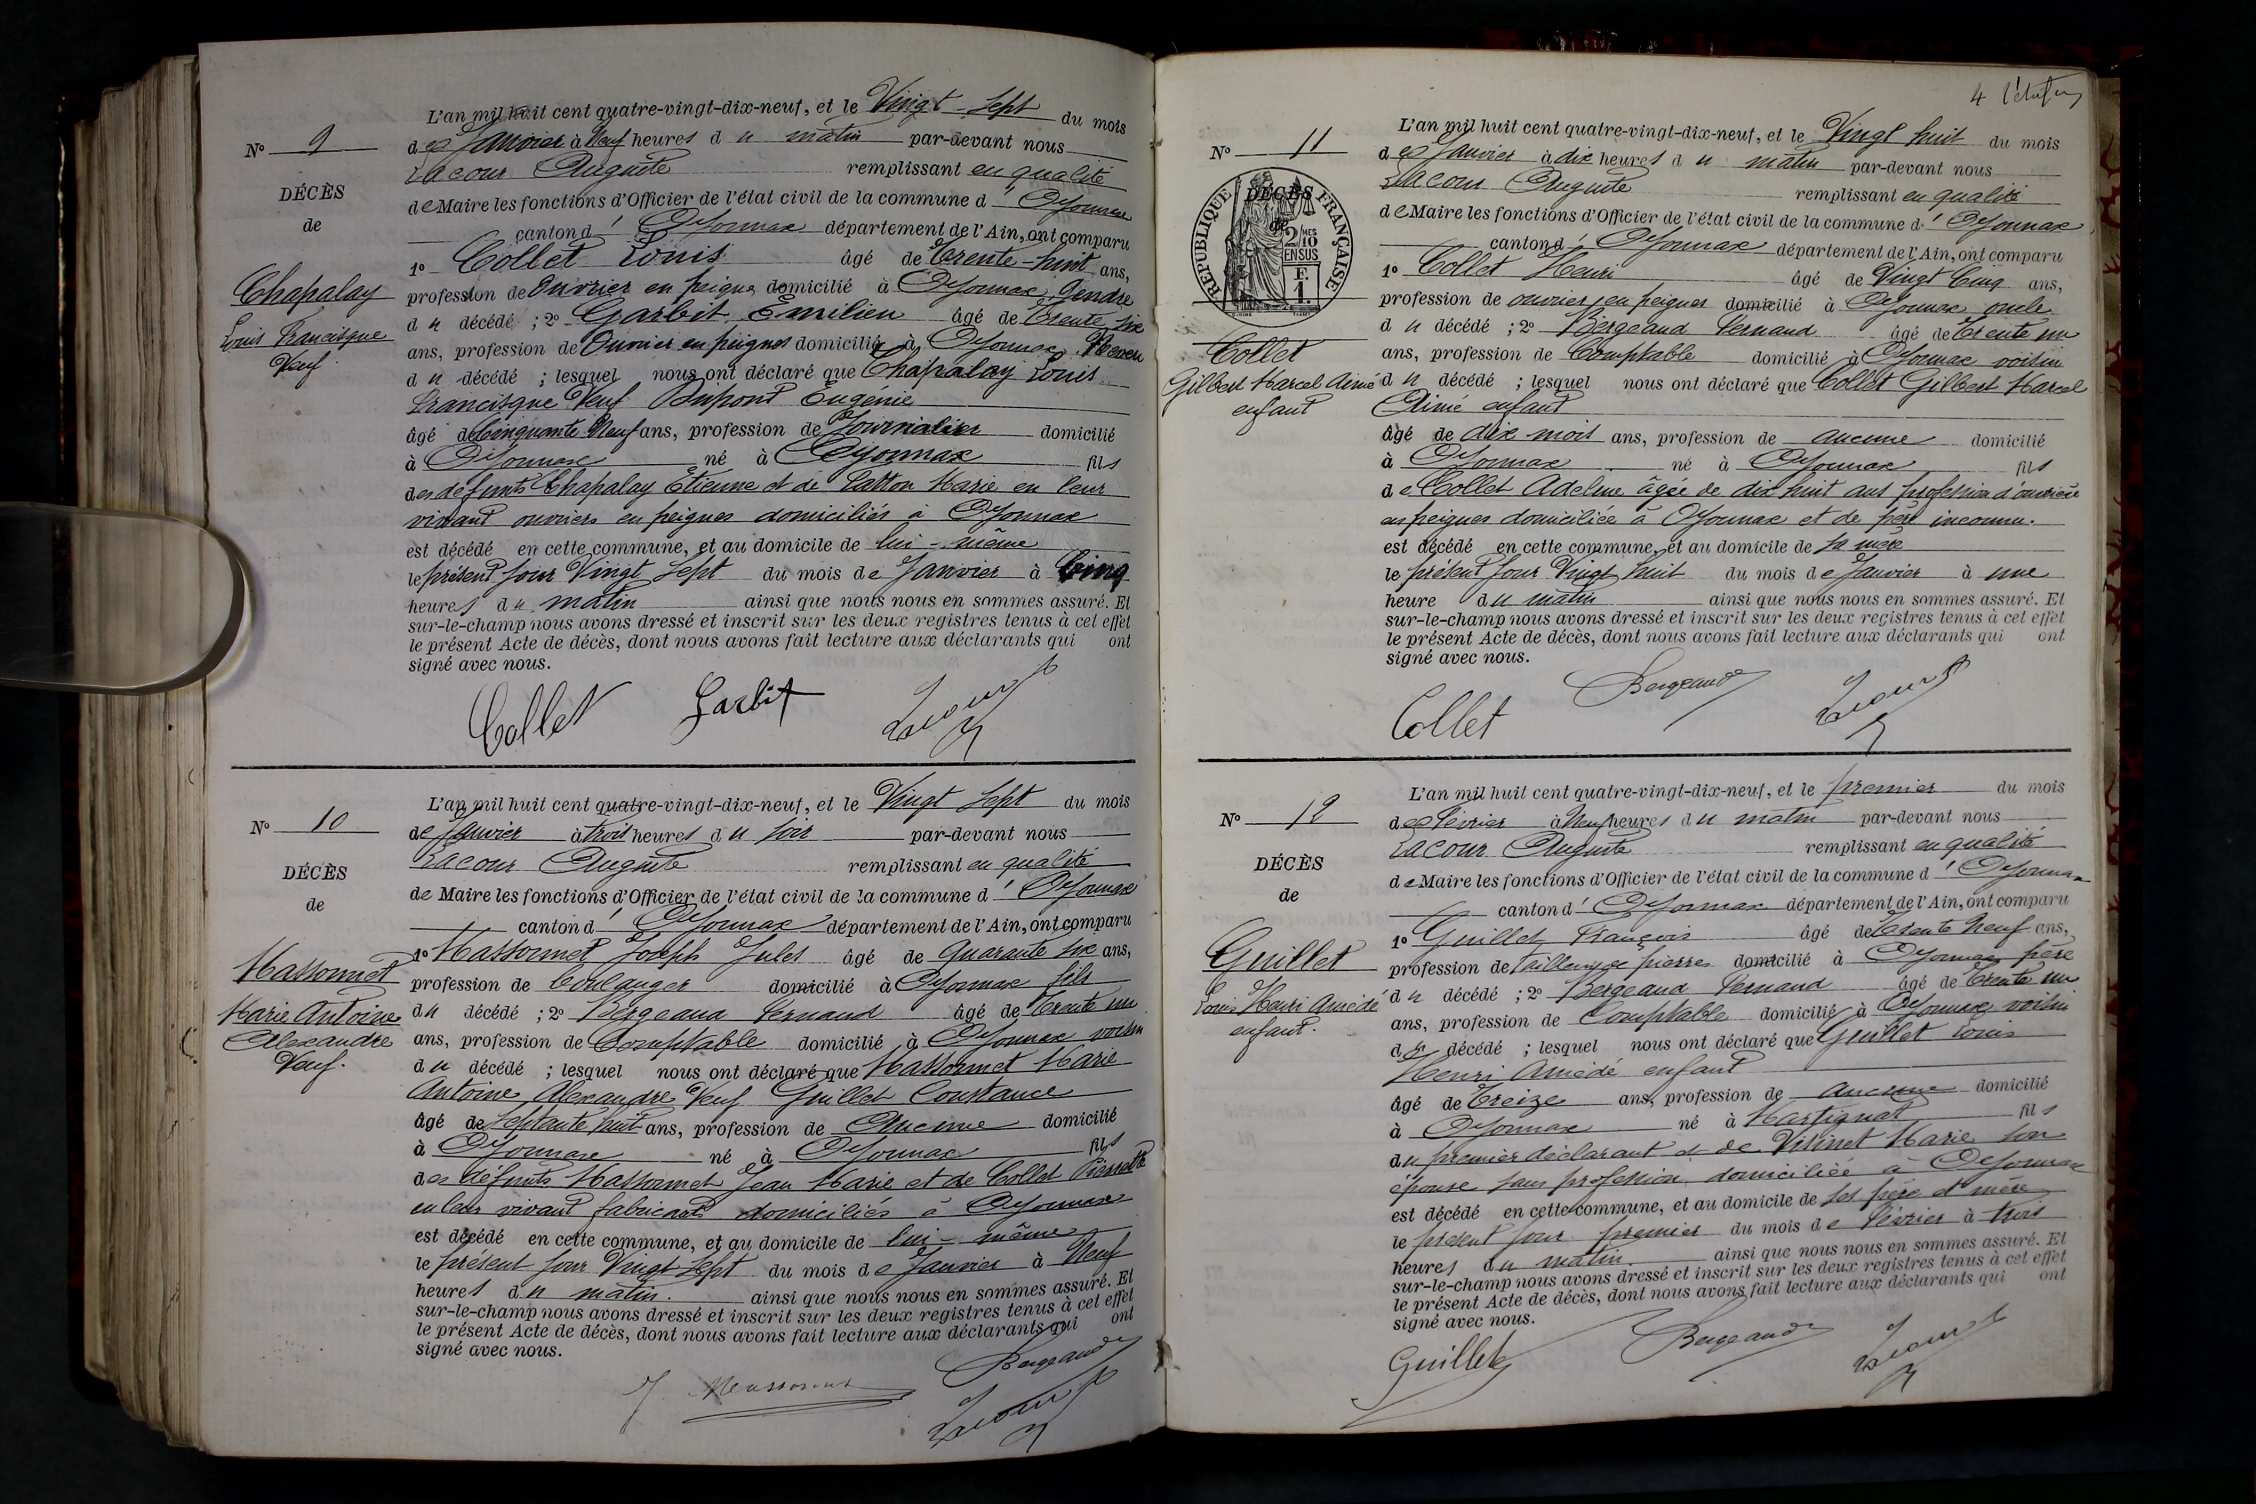 N° 9
DÉCÈS
de
Chapalay
Louis Francisque
Veuf
L'an mil huit cent quatre-vingt-dix-neuf, et le Vingt Sept du mois
de Janvier à Neuf heures du matin par-devant nous
Lacour Auguste remplissant en qualité
de Maire les fonctions d'Officier de l'état civil de la commune d' Oyonnax
canton d' Oyonnax département de l'Ain, ont comparu
1° Collet Louis âgé de Trente-huit ans,
profession de Ouvrier en peignes domicilié à Oyonnax Gendre
du décédé ; 2° Garbit Emilien âgé de Trente six
ans, profession de Ouvrier en peignes domicilié à Oyonnax Neveu
du décédé ; lesquel nous ont déclaré que Chapalay Louis
Francisque Veuf Dupont Eugénie
âgé de Cinquante Neuf ans, profession de Journalier domicilié
à Oyonnax né à Oyonnax fils
des défunts Chapalay Etienne et de Marie en leur
vivant ouvriers en peignes domiciliés à Oyonnax
est décédé en cette commune, et au domicile de lui-même
le présent jour Vingt Sept du mois de Janvier à Cinq
heures du matin ainsi que nous nous en sommes assuré. Et
sur-le-champ nous avons dressé et inscrit sur les deux registres tenus à cet effet
le présent Acte de décès, dont nous avons fait lecture aux déclarants qui ont
signé avec nous.
Collet Garbit Lacour
N° 10
DÉCÈS
de
Massonnet
Marie Antoine
Alexandre
Veuf.
L'an mil huit cent quatre-vingt-dix-neuf, et le Vingt Sept du mois
de Janvier à trois heures du soir par-devant nous
Lacour Auguste remplissant en qualité
de Maire les fonctions d'Officier de l'état civil de la commune d' Oyonnax
canton d' Oyonnax département de l'Ain, ont comparu
1° Massonnet Joseph Jules âgé de Quarante six ans,
profession de boulanger domicilié à Oyonnax fils
du décédé ; 2° Bergeaud Fernand âgé de Trente un
ans, profession de Comptable domicilié à Oyonnax voisin
du décédé ; lesquel nous ont déclaré que Massonnet Marie
Antoine Alexandre Veuf Guillet Constance
âgé de Septante huit ans, profession de Aucune domicilié
à Oyonnax né à Oyonnax fils
des défunts Massonnet Jean Marie et de Collet Pierrette
en leur vivant fabricants domiciliés à Oyonnax
est décédé en cette commune, et au domicile de lui-même
le présent jour Vingt Sept du mois de Janvier à Neuf
heures du matin. ainsi que nous nous en sommes assuré. Et
sur-le-champ nous avons dressé et inscrit sur les deux registres tenus à cet effet
le présent Acte de décès, dont nous avons fait lecture aux déclarants qui ont
signé avec nous.
J. Massonnet Bergeaud
Lacour
4
N° 11
DÉCÈS
de
RÉPUBLIQUE FRANÇAISE
2/10 MES
EN SUS
F.
1.
Collet
Gilbert Marcel Aimé
enfant
L'an mil huit cent quatre-vingt-dix-neuf, et le Vingt huit du mois
de Janvier à dix heures du matin par-devant nous
Lacour Auguste remplissant en qualité
de Maire les fonctions d'Officier de l'état civil de la commune d' Oyonnax
canton d' Oyonnax département de l'Ain, ont comparu
1° Collet Henri âgé de Vingt Cinq ans,
profession de ouvrier en peignes domicilié à Oyonnax oncle
du décédé ; 2° Bergeaud Fernand âgé de Trente un
ans, profession de Comptable domicilié à Oyonnax voisin
du décédé ; lesquel nous ont déclaré que Collet Gilbert Marcel
Aimé enfant
âgé de dix mois ans, profession de aucune domicilié
à Oyonnax né à Oyonnax fils
de Collet Adeline âgée de dix huit ans profession d'ouvrière
en peignes domiciliée à Oyonnax et de père inconnu.
est décédé en cette commune, et au domicile de sa mère
le présent jour Vingt huit du mois de Janvier à une
heure du matin ainsi que nous nous en sommes assuré. Et
sur-le-champ nous avons dressé et inscrit sur les deux registres tenus à cet effet
le présent Acte de décès, dont nous avons fait lecture aux déclarants qui ont
signé avec nous.
Collet Bergeaud Lacour
N° 12
DÉCÈS
de
Guillet
Louis Henri Amédé
enfant.
L'an mil huit cent quatre-vingt-dix-neuf, et le premier du mois
de Février à Neuf heures du matin par-devant nous
Lacour Auguste remplissant en qualité
de Maire les fonctions d'Officier de l'état civil de la commune d' Oyonnax
canton d' Oyonnax département de l'Ain, ont comparu
1° Guillet François âgé de Trente Neuf ans,
profession de tailleur de pierres domicilié à Oyonnax père
du décédé ; 2° Bergeaud Fernand âgé de Trente un
ans, profession de Comptable domicilié à Oyonnax voisin
du décédé ; lesquel nous ont déclaré que Guillet Louis
Henri Amédé enfant
âgé de Treize ans, profession de aucune domicilié
à Oyonnax né à Martignat fils
du premier déclarant et de Marie son
épouse sans profession domiciliée à Oyonnax
est décédé en cette commune, et au domicile de ses père et mère
le présent jour premier du mois de Février à trois
heures du matin. ainsi que nous nous en sommes assuré. Et
sur-le-champ nous avons dressé et inscrit sur les deux registres tenus à cet effet
le présent Acte de décès, dont nous avons fait lecture aux déclarants qui ont
signé avec nous.
Guillet Bergeaud Lacour